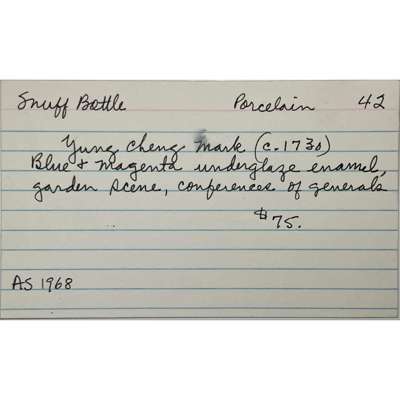 Snuff Bottle Porcelain 42
Yung Cheng Mark (c.1730)
Blue & Magenta underglaze enamel,
garden scene, conferences of generals
$75.
AS 1968